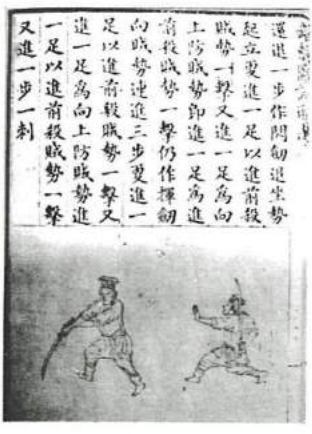 還退一步作閃劒退坐勢
起立更進一足以進前殺
賊勢一擊又進一足為向
上防賊勢即進一足為進
前殺賊勢一擊仍作揮劒
向賊勢連進三步更進一
足以進前殺賊勢一擊又
進一足為向上防賊勢進
一足以進前殺賊勢一擊
又進一步一刺